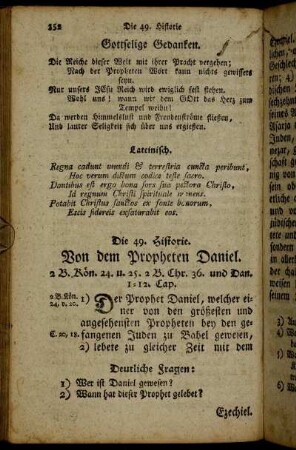 252 Die 49. Historie
Gottselige Gedanken.
Die Reiche dieser Welt mit ihrer Pracht vergehen;
Nach der Propheten Wort kann nichts gewissers
seyn.
Nur unsers JEsu Reich wird ewiglich fest stehen.
Wohl uns! wann wir dem GOtt das Herz zum
Tempel weihn!
Da werden Himmelslust und Freudenströme fliessen,
Und lauter Seligkeit sich über uns ergiessen.
Lateinisch.
Regna cadunt mundi & terrestria cuncta peribunt,
Hoc verum dictum codice teste sacro.
Dantibus est ergo bona sors sua pectora Christo,
Id regnum Christi spirituale
Potabit Christus sanctos ex fonte bonorum,
Escis sidereis exsaturabit eos.
Die 49. Historie.
Von dem Propheten Daniel.
2 B. Kön. 24. u. 25. 2 B. Chr. 36. und Dan.
1-12. Cap.
2 B. Kön.
24. v. 20.
1) Der Prophet Daniel, welcher ei-
ner von den größesten und
angesehensten Propheten bey den ge-
C. 20, 18. fangenen Juden zu Babel gewesen,
2) lebete zu gleicher Zeit mit dem
Deutliche Fragen:
1) Wer ist Daniel gewesen?
2) Wann hat dieser Prophet gelebet?
Ezechiel.